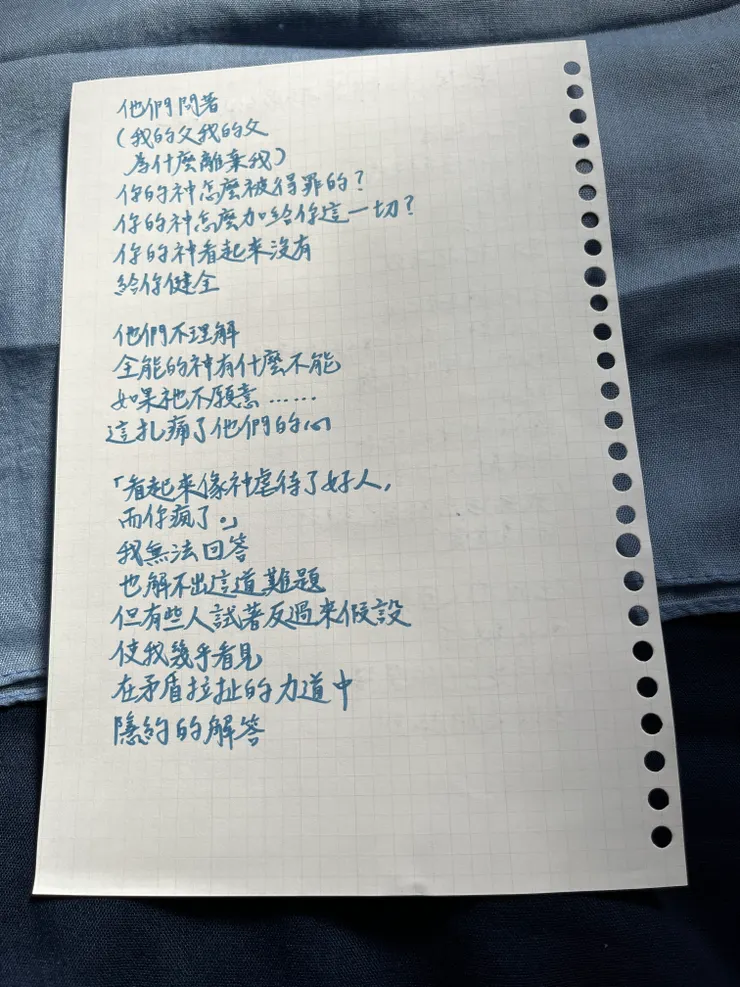 他們問著
(我的父我的父
為什麼離棄我)
你的神怎麼被得罪的?
你的神怎麼加給你這一切?
你的神看起來沒有
給你健全
他們不理解
全能的神有什麼不能
如果祂不願意……
這扎痛了他們的心
「看起來像神虐待了好人,
而你瘋了。」
我無法回答
也解不出這道難題
但有些人試著反過來假設
使我幾乎看見
在矛盾拉扯的力道中
隱約的解答